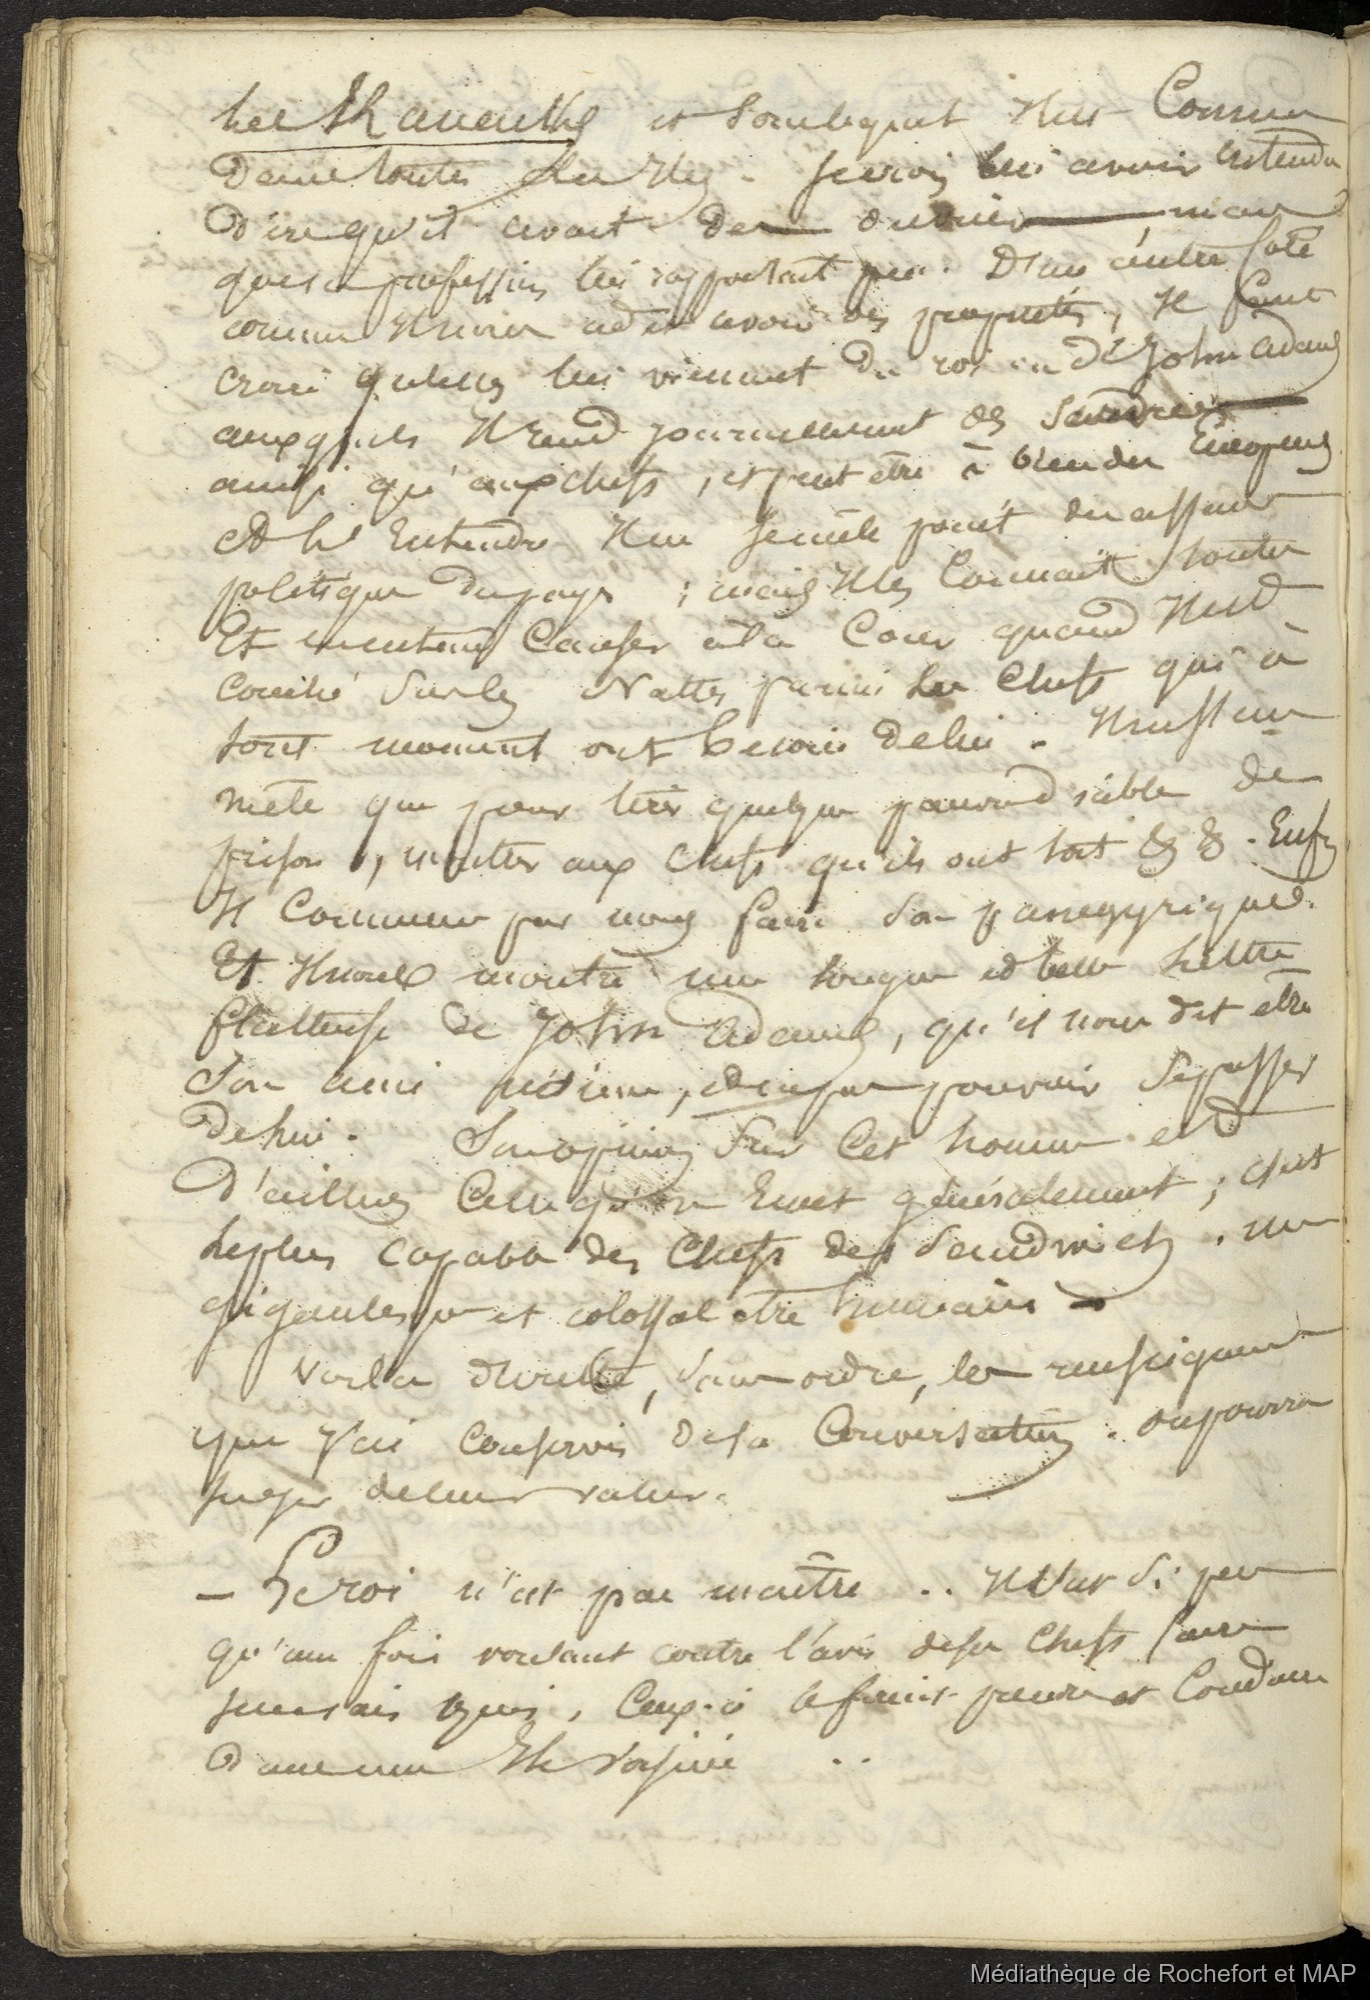 et soulagent
dans toutes les Iles. je crois lui avoir entendu
dire qu'il avait des ouvriers mais
que sa profession lui rapportait peu. D'un autre coté
comme Mr avoir des proprietés, il faut
croire qu'elles lui viennent du roi ou de John adams
auxquels il rend journellement des services
ainsi qu'aux chefs, et peut etre à bien des Européens
A l' Entendre il ne se mêle point des affaires
politiques du pays ; mais il les Connait toutes
Et entend Causer à la Cour quand il est
couché sur les Nattes parmi les Chefs qui à
tout moment ont besoin de lui. Il ne se
mêle que pour tirer quelque pauvre diable de
prison, montrer aux chefs qu'ils ont tort &c &c. Enfin
Il Commence par nous faire son panegyrique.
Et il nous montre une longue et belle lettre
flatteuse de John Adams, qu'il nous dit etre
Son ami intime, et ne pas pouvoir se passer
de lui. Son opinion sur Cet homme est
D'ailleurs Celle qu'on émet généralement ; c'est
le plus capable des Chefs des Sandwich. un
gigantesque et colossal etre humain
Voila de suite, sans ordre, les renseignements
que j'ai conservés de sa Conversation. on pourra
juger de leur valeur.
— Le roi n'est pas maitre .. Il l'est si peu
qu'une fois voulant contre l'avis de ses Chefs faire
je ne sais quoi, Ceux-ci le firent prendre et Conduire
dans une Ile voisine ..
Médiathèque de Rochefort et MAP